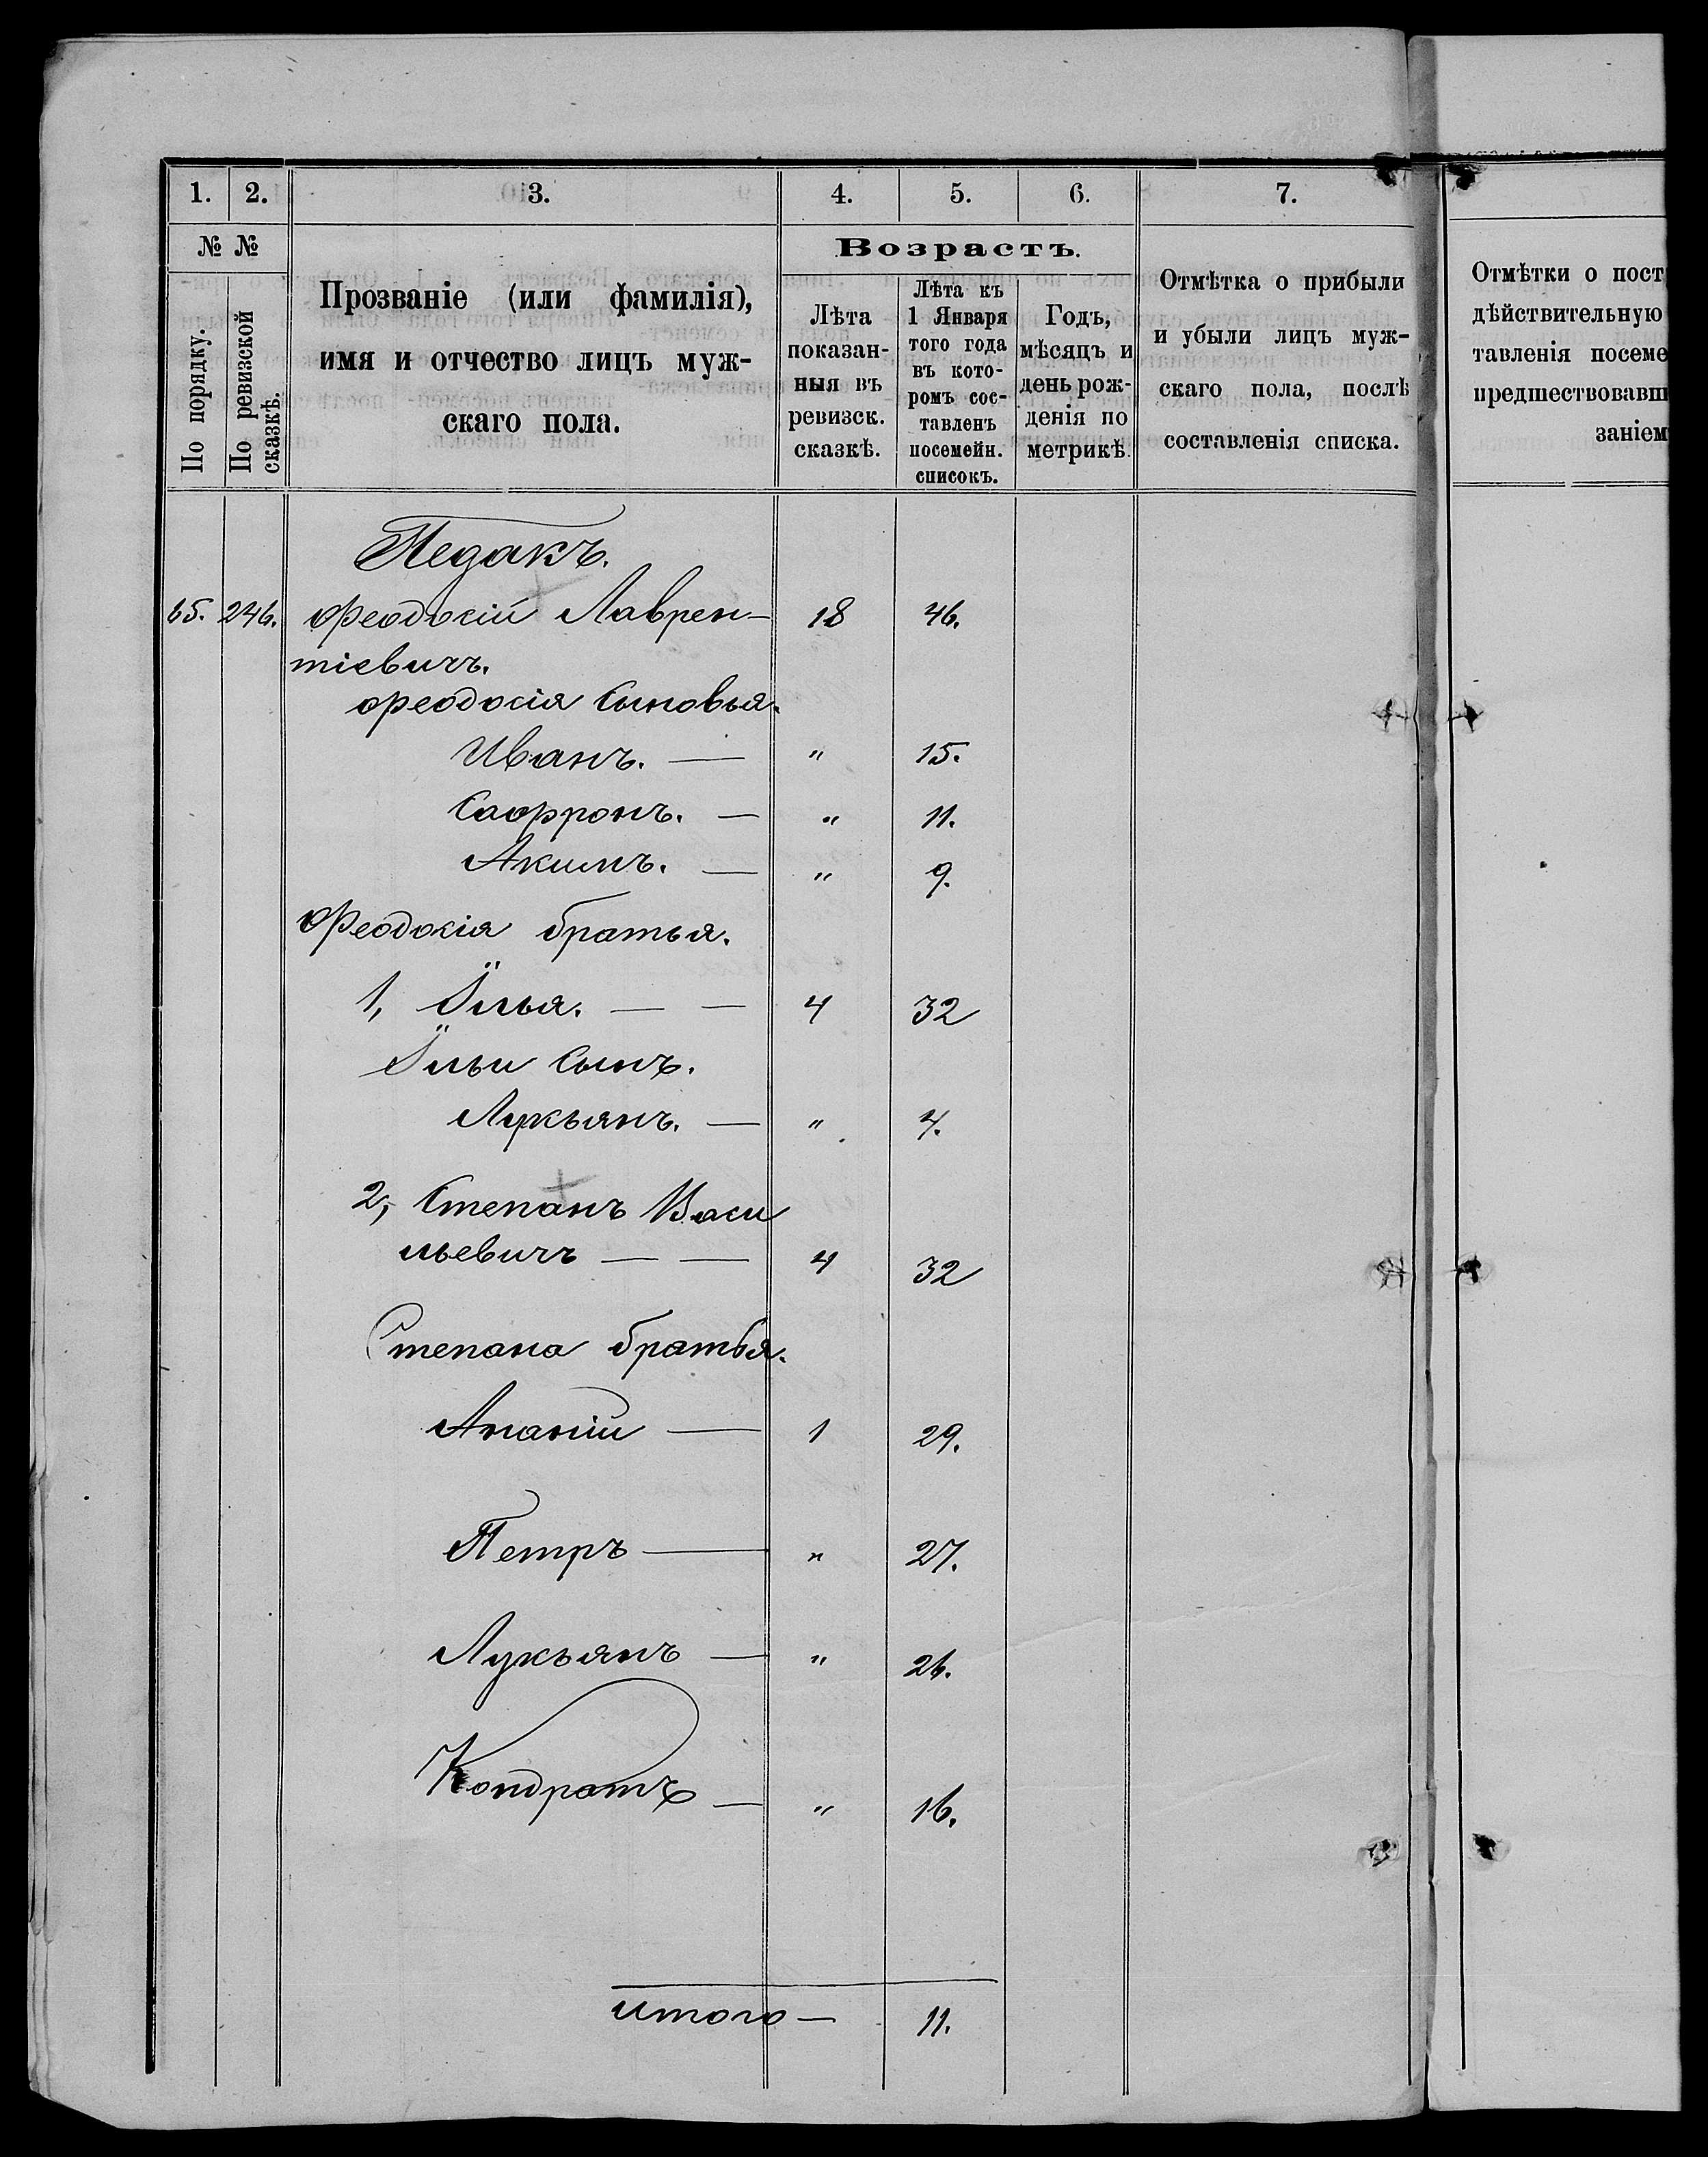 1. 2. 3. 4. 5. 6. 7.
№ № Возрастъ.
По порядку.
По ревизской сказкѣ.
Прозваніе (или фамилія),
имя и отчество лицъ муж-
скаго пола.
Лѣта
показан-
ныя въ
ревизск.
сказкѣ.
Лѣта къ
1 Января
того года
въ кото-
ромъ сос-
тавленъ
посемейн.
списокъ.
Годъ,
мѣсяцъ и
день рож-
денія по
метрикѣ.
Отмѣтка о прибыли
и убыли лицъ муж-
скаго пола, послѣ
составленія списка.
Отмѣтки о пост
дѣйствительную
тавленія посеме
предшествовавш
заніем
Педакъ.
65. 246. Феодосій Лаврен- 18 46.
тіевичъ.
Феодосія Сыновья.
Иванъ. — " 15.
Сафронъ. — " 11.
Акимъ. — " 9.
Феодосія братья.
1, Илья. — — 4 32
Ильи Сынъ.
Лукьянъ. — " 4.
2, Степанъ Васи
льевичъ — — 4 32
Степана братья.
Ананій — 1 29.
Петръ — " 27.
Лукьянъ — " 26.
Кондратъ — " 16.
итого — 11.